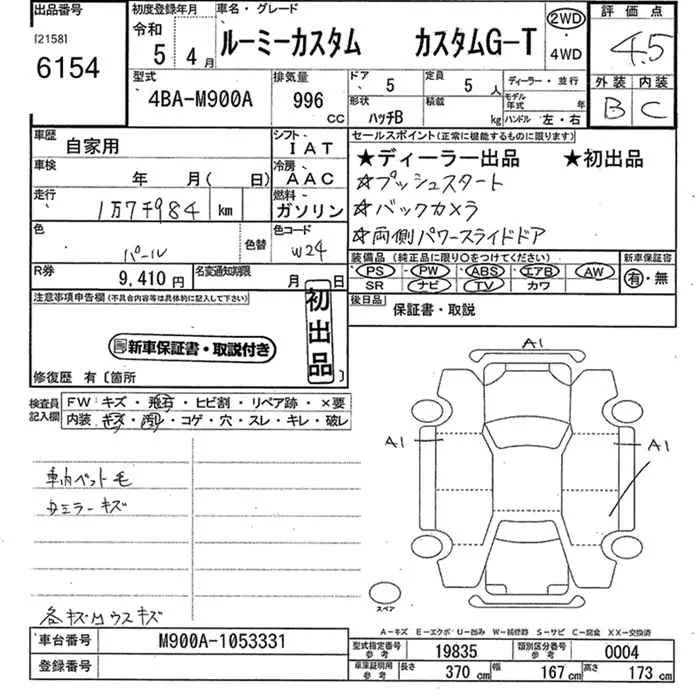 出品番号
[2158]
6154
初度登録年月
令和
5年
4月
車名・グレード
ルーミーカスタム カスタムG-T
2WD
・
4WD
評価点
4.5
外装 内装
B C
型式
4BA-M900A
排気量
996
CC
ドア
5
定員
5人
形状
ハッチB
積載
kg
ディーラー・並行
モデル年式
年
ハンドル 左・右
車歴
自家用
シフト
IAT
車検
年 月( 日)
冷房
AAC
走行
1万7千984 km
燃料
ガソリン
色
パール
色替
色コード
W24
R券
9,410円
名変通知期限
月 日
セールスポイント(正常に機能するものに限ります)
★ディーラー出品 ★初出品
☆プッシュスタート
☆バックカメラ
☆両側パワースライドドア
装備品 (純正品に限り○をつけてください)
PS・PW・ABS・エアB・AW
SR ナビ・TV・カワ
新車保証書
有・無
後日品
保証書・取説
注意事項申告欄(不具合内容等は具体的に記入して下さい)
初出品
新車保証書・取説付き
修復歴 有〔箇所 〕
検査員
記入欄
FW: キズ・飛石・ヒビ割・リペア跡・×要
内装: キズ・汚レ・コゲ・穴・スレ・キレ・破レ
車内ペット毛
ミラーキズ
各キズ
キズ
A1
A1
A1
スペア
A-キズ E-エクボ U-凹み W-補修跡 S-サビ C-腐食 XX-交換済
車台番号
M900A-1053331
登録番号
型式指定番号
参考
19835
類別区分番号
参考
0004
車庫証明用
参考
長さ 370 cm
幅 167 cm
高さ 173 cm